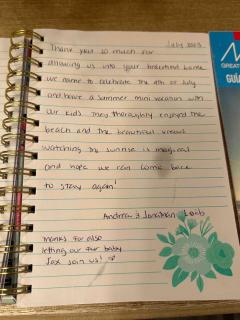 July 2023
Thank you so much for
allowing us into your beautiful home
we came to celebrate the 4th of July
and have a summer mini vacation with
our kids. They thoroughly enjoyed the
beach and the beautiful views.
Watching the sunrise is magical
and hope we can come back
to stay again!
Andrea & Jonathan
Thanks for also
letting our fur baby
Jax join us!
GREAT
GUÍA